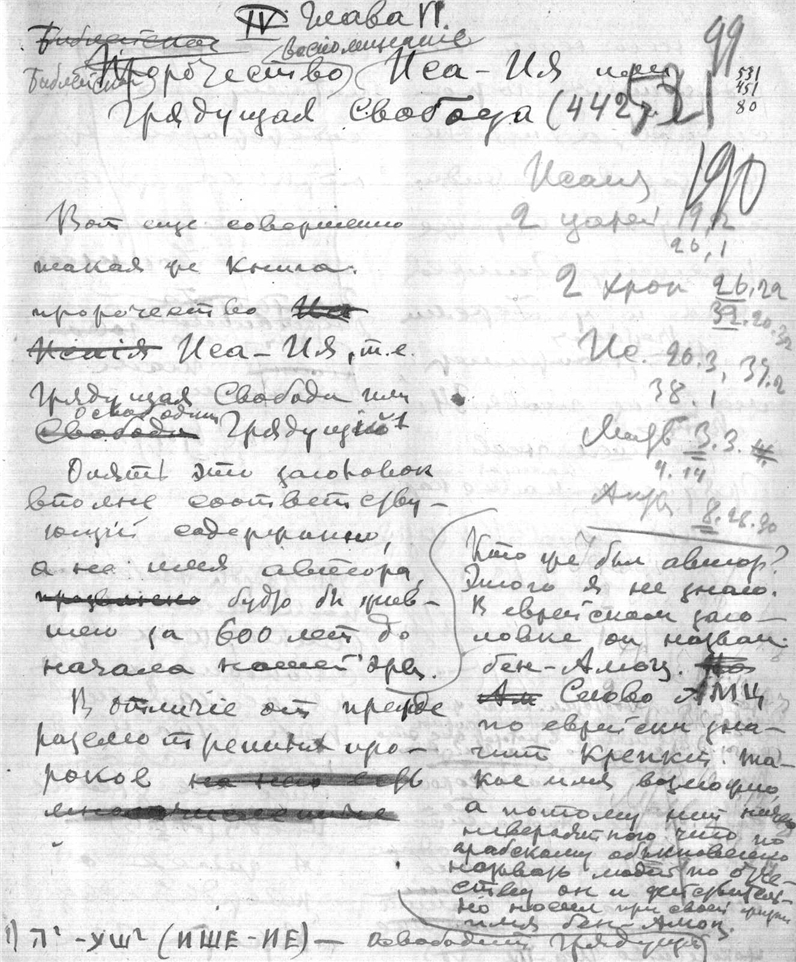 IV Глава VI.
Библейская
воспоминание
Библейская Пророчество Иеа-Ия
Грядущая Свобода (442
99
531
451
80
Исаия
190
2 царей 19,2
20,1
2 хрон 26.22
32.20.32
Ис. 36.3, 37.2
38.1
3.3.
4.14
8.28.30
Вот еще совершенно
такая же книга.
пророчество
Иеа-Ия, т.е.
Грядущая Свобода или
освободит
Свобода Грядущий
Опять это заголовок
вполне соответству-
ющий содержанию,
а не имя автора,
будто бы жив-
шего за 600 лет до
начала нашей эры.
В отличіе от прежде
разсмотренных про-
роков
Кто же был автор?
Этого я не знаю.
В еврейском заго-
ловке он назван
бен-Амоц. На
Ам Слово АМЦ
по еврейски зна-
чит Крепкий. Та-
кое имя возможно,
а потому нет ничего
невероятного что по
арабскому обыкновению
называть людей по оте-
ству он и действитель-
но носил при своей жизни
имя бен-Амоц.
1) יʹ-УШʹ (ИШЕ-ИЕ) — освободит Грядущий